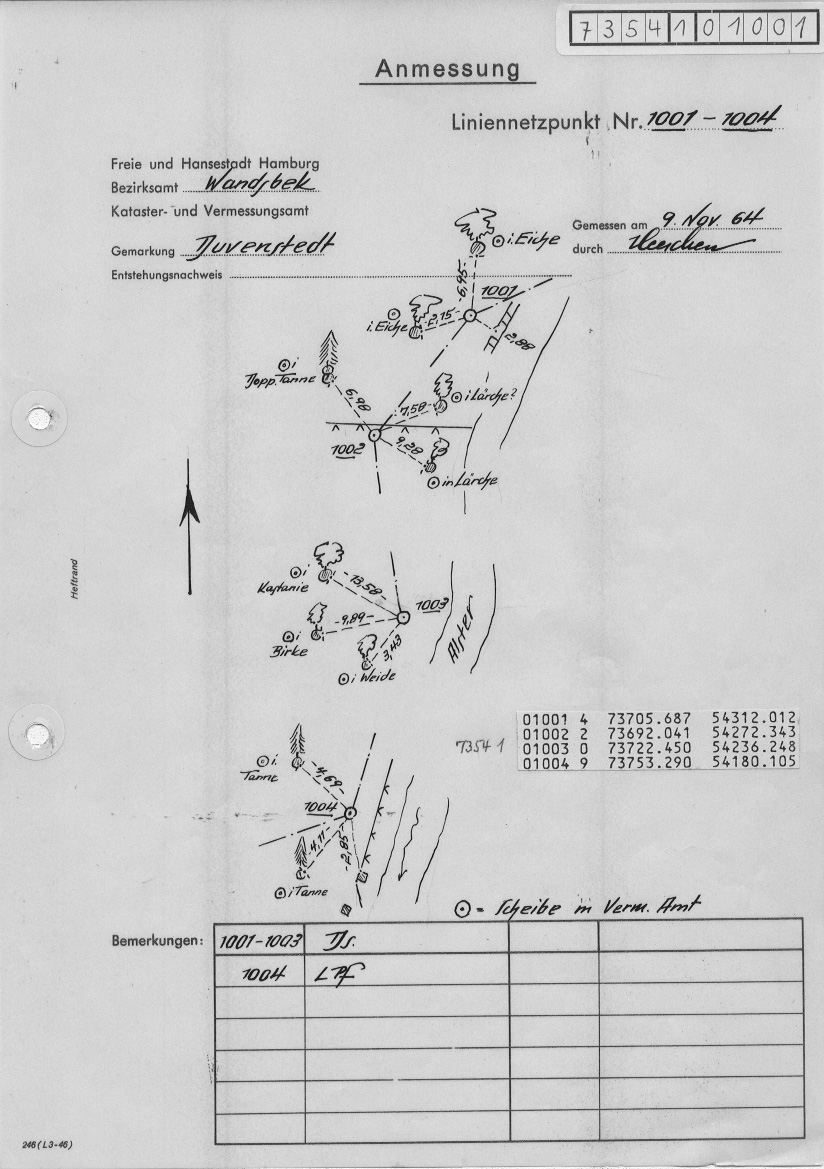 7354101001
Anmessung
Liniennetzpunkt Nr. 1001 - 1004
Freie und Hansestadt Hamburg
Bezirksamt Wandsbek
Kataster- und Vermessungsamt
Gemessen am 9. Nov. 64
durch
Gemarkung Duvenstedt
Entstehungsnachweis
i. Eiche
6,95
1001
i. Eiche
2,15
2,88
i
Dopp. Tanne
6,98
7,58
i Lärche?
1002
9,28
in Lärche
Heftrand
i
Kastanie
13,58
1003
9,89
i
Birke
3,43
i Weide
Alster
01001 4 73705.687 54312.012
01002 2 73692.041 54272.343
7354 1
01003 0 73722.450 54236.248
01004 9 73753.290 54180.105
i.
Tanne
4,69
1004
4,11
2,85
i Tanne
= Scheibe im Verm. Amt
Bemerkungen:
1001-1003 Ds.
1004 LPf
246 (L3-46)